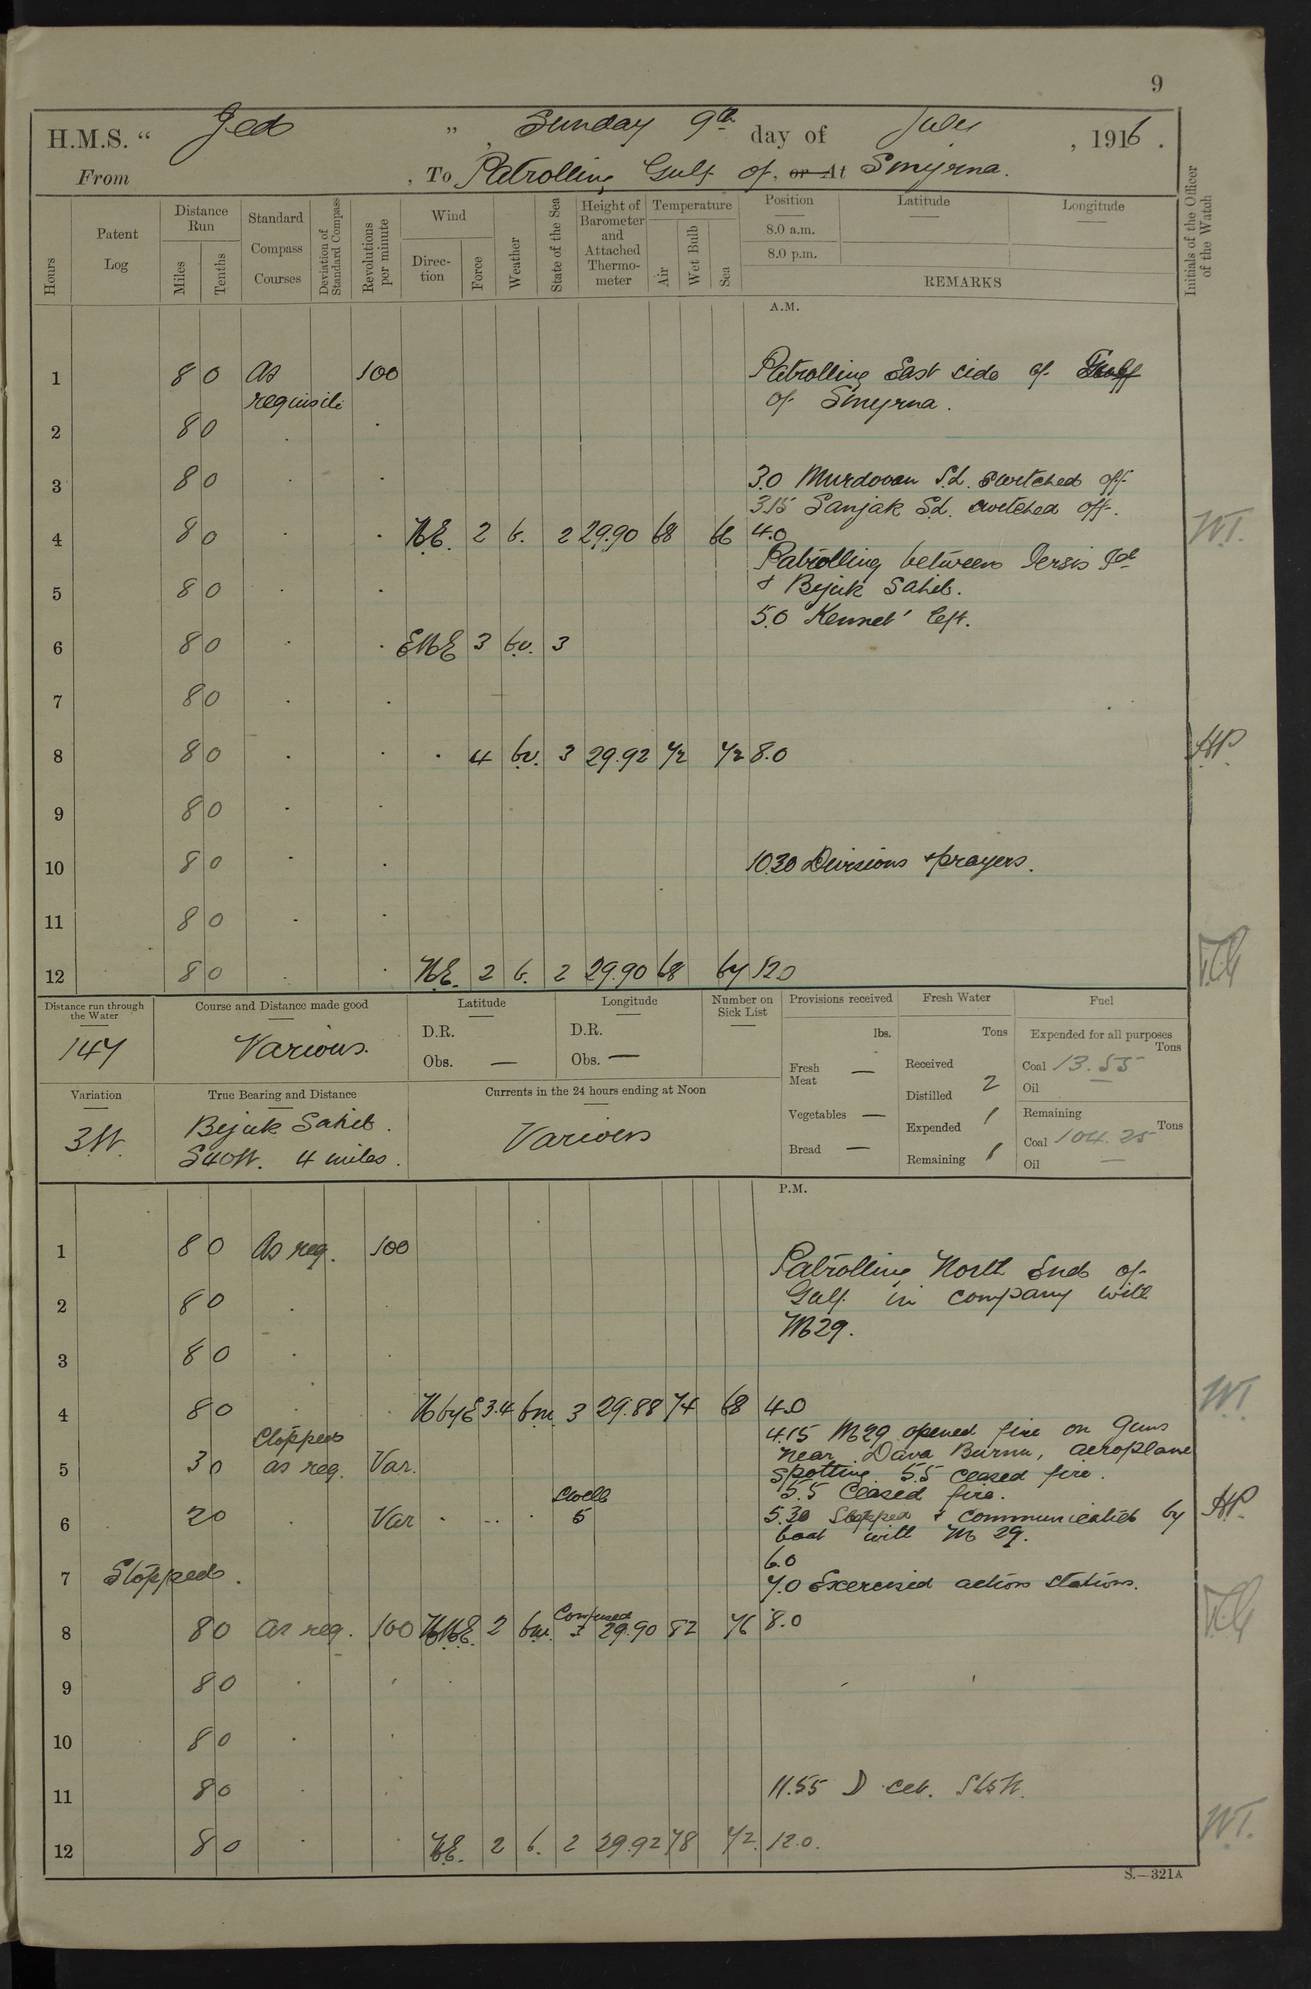 9
H.M.S. " Jed ", Sunday 9th day of July, 1916.
From , To Patrolling Gulf of, or At Smyrna.
Hours
Patent Log
Distance Run
Miles
Tenths
Standard Compass Courses
Deviation of Standard Compass
Revolutions per minute
Wind
Direction
Force
Weather
State of the Sea
Height of Barometer and Attached Thermometer
Temperature
Air
Wet Bulb
Sea
Position
Latitude
Longitude
8.0 a.m.
8.0 p.m.
REMARKS
Initials of the Officer of the Watch
A.M.
1 8 0 As requisite 100 Patrolling East side of Gulf
of Smyrna.
2 8 0
3 8 0 3.0 Murdovan S.L. switched off
3.15 Sanjak S.L. switched off.
4 8 0 N.E. 2 b. 2 29.90 68 66 4.0 W.T.
Patrolling between Persis Id
5 8 0 & Bejuk Sahib.
5.0 'Kennet' left.
6 8 0 ENE 3 b.v. 3
7 8 0
8 8 0 4 b.v. 3 29.92 72 72 8.0 HP.
9 8 0
10 8 0 10.30 Divisions & prayers.
11 8 0
12 8 0 N.E. 2 b. 2 29.90 68 67 12.0
Distance run through the Water
147
Course and Distance made good
Various.
Latitude
D.R.
Obs. —
Longitude
D.R.
Obs. —
Number on Sick List
Provisions received
lbs.
Fresh Meat —
Vegetables —
Bread —
Fresh Water
Tons
Received
Distilled 2
Expended 1
Remaining 1
Fuel
Expended for all purposes
Tons
Coal 13.55
Oil —
Remaining
Tons
Coal 104.25
Oil —
Variation
3W.
True Bearing and Distance
Bejuk Sahib.
S40W. 4 miles.
Currents in the 24 hours ending at Noon
Various
P.M.
1 8 0 As req. 100
Patrolling North End of
2 8 0 Gulf in company with
M29.
3 8 0
4 8 0 N by E 3.4 b.m. 3 29.88 74 68 4.0 W.T.
Stopped
4.15 M29 opened fire on Guns
5 3 0 as req. Var. near Dava Burnu, aeroplane
spotting. 5.5 Ceased fire.
5.5 Ceased fire.
6 2 0 Var Swell 5 5.30 Stopped & communicated by HP.
boat with M 29.
6.0
7 Stopped. 7.0 Exercised action stations.
8 8 0 as req. 100 NNE. 2 b.m. Confused 3 29.90 82 76 8.0
9 8 0
10 8 0
11 8 0 11.55 D set.
12 8 0 N.E. 2 b. 2 29.92 78 72. 12.0. W.T.
S.—321A